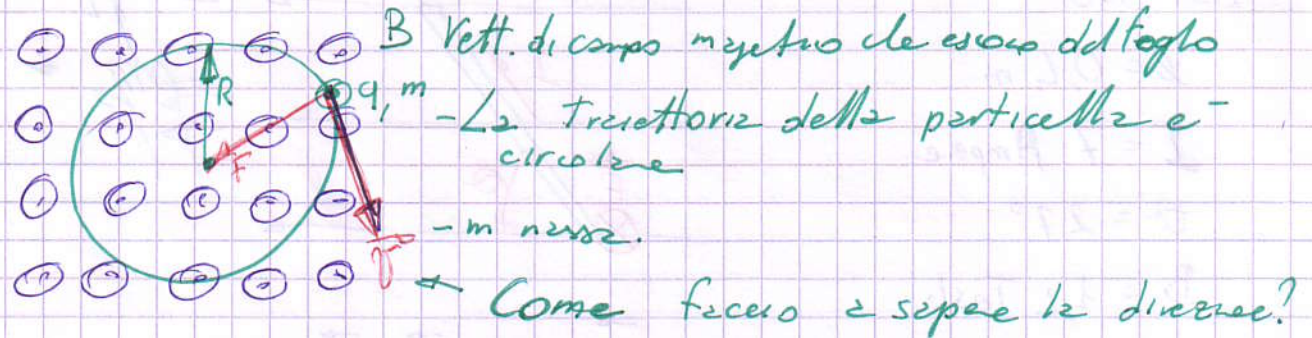 B Vett. di campo magnetico che escono dal foglio
R
q, m
- La traiettoria della particella e-
circolare
F
- m massa.
v
← Come faccio a sapere la direzione?